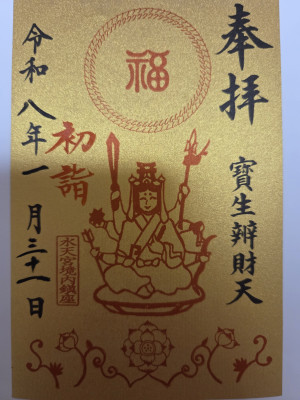 奉拝
寶生辨財天
福
初詣
水天宮境内鎮座
令和八年一月三十一日